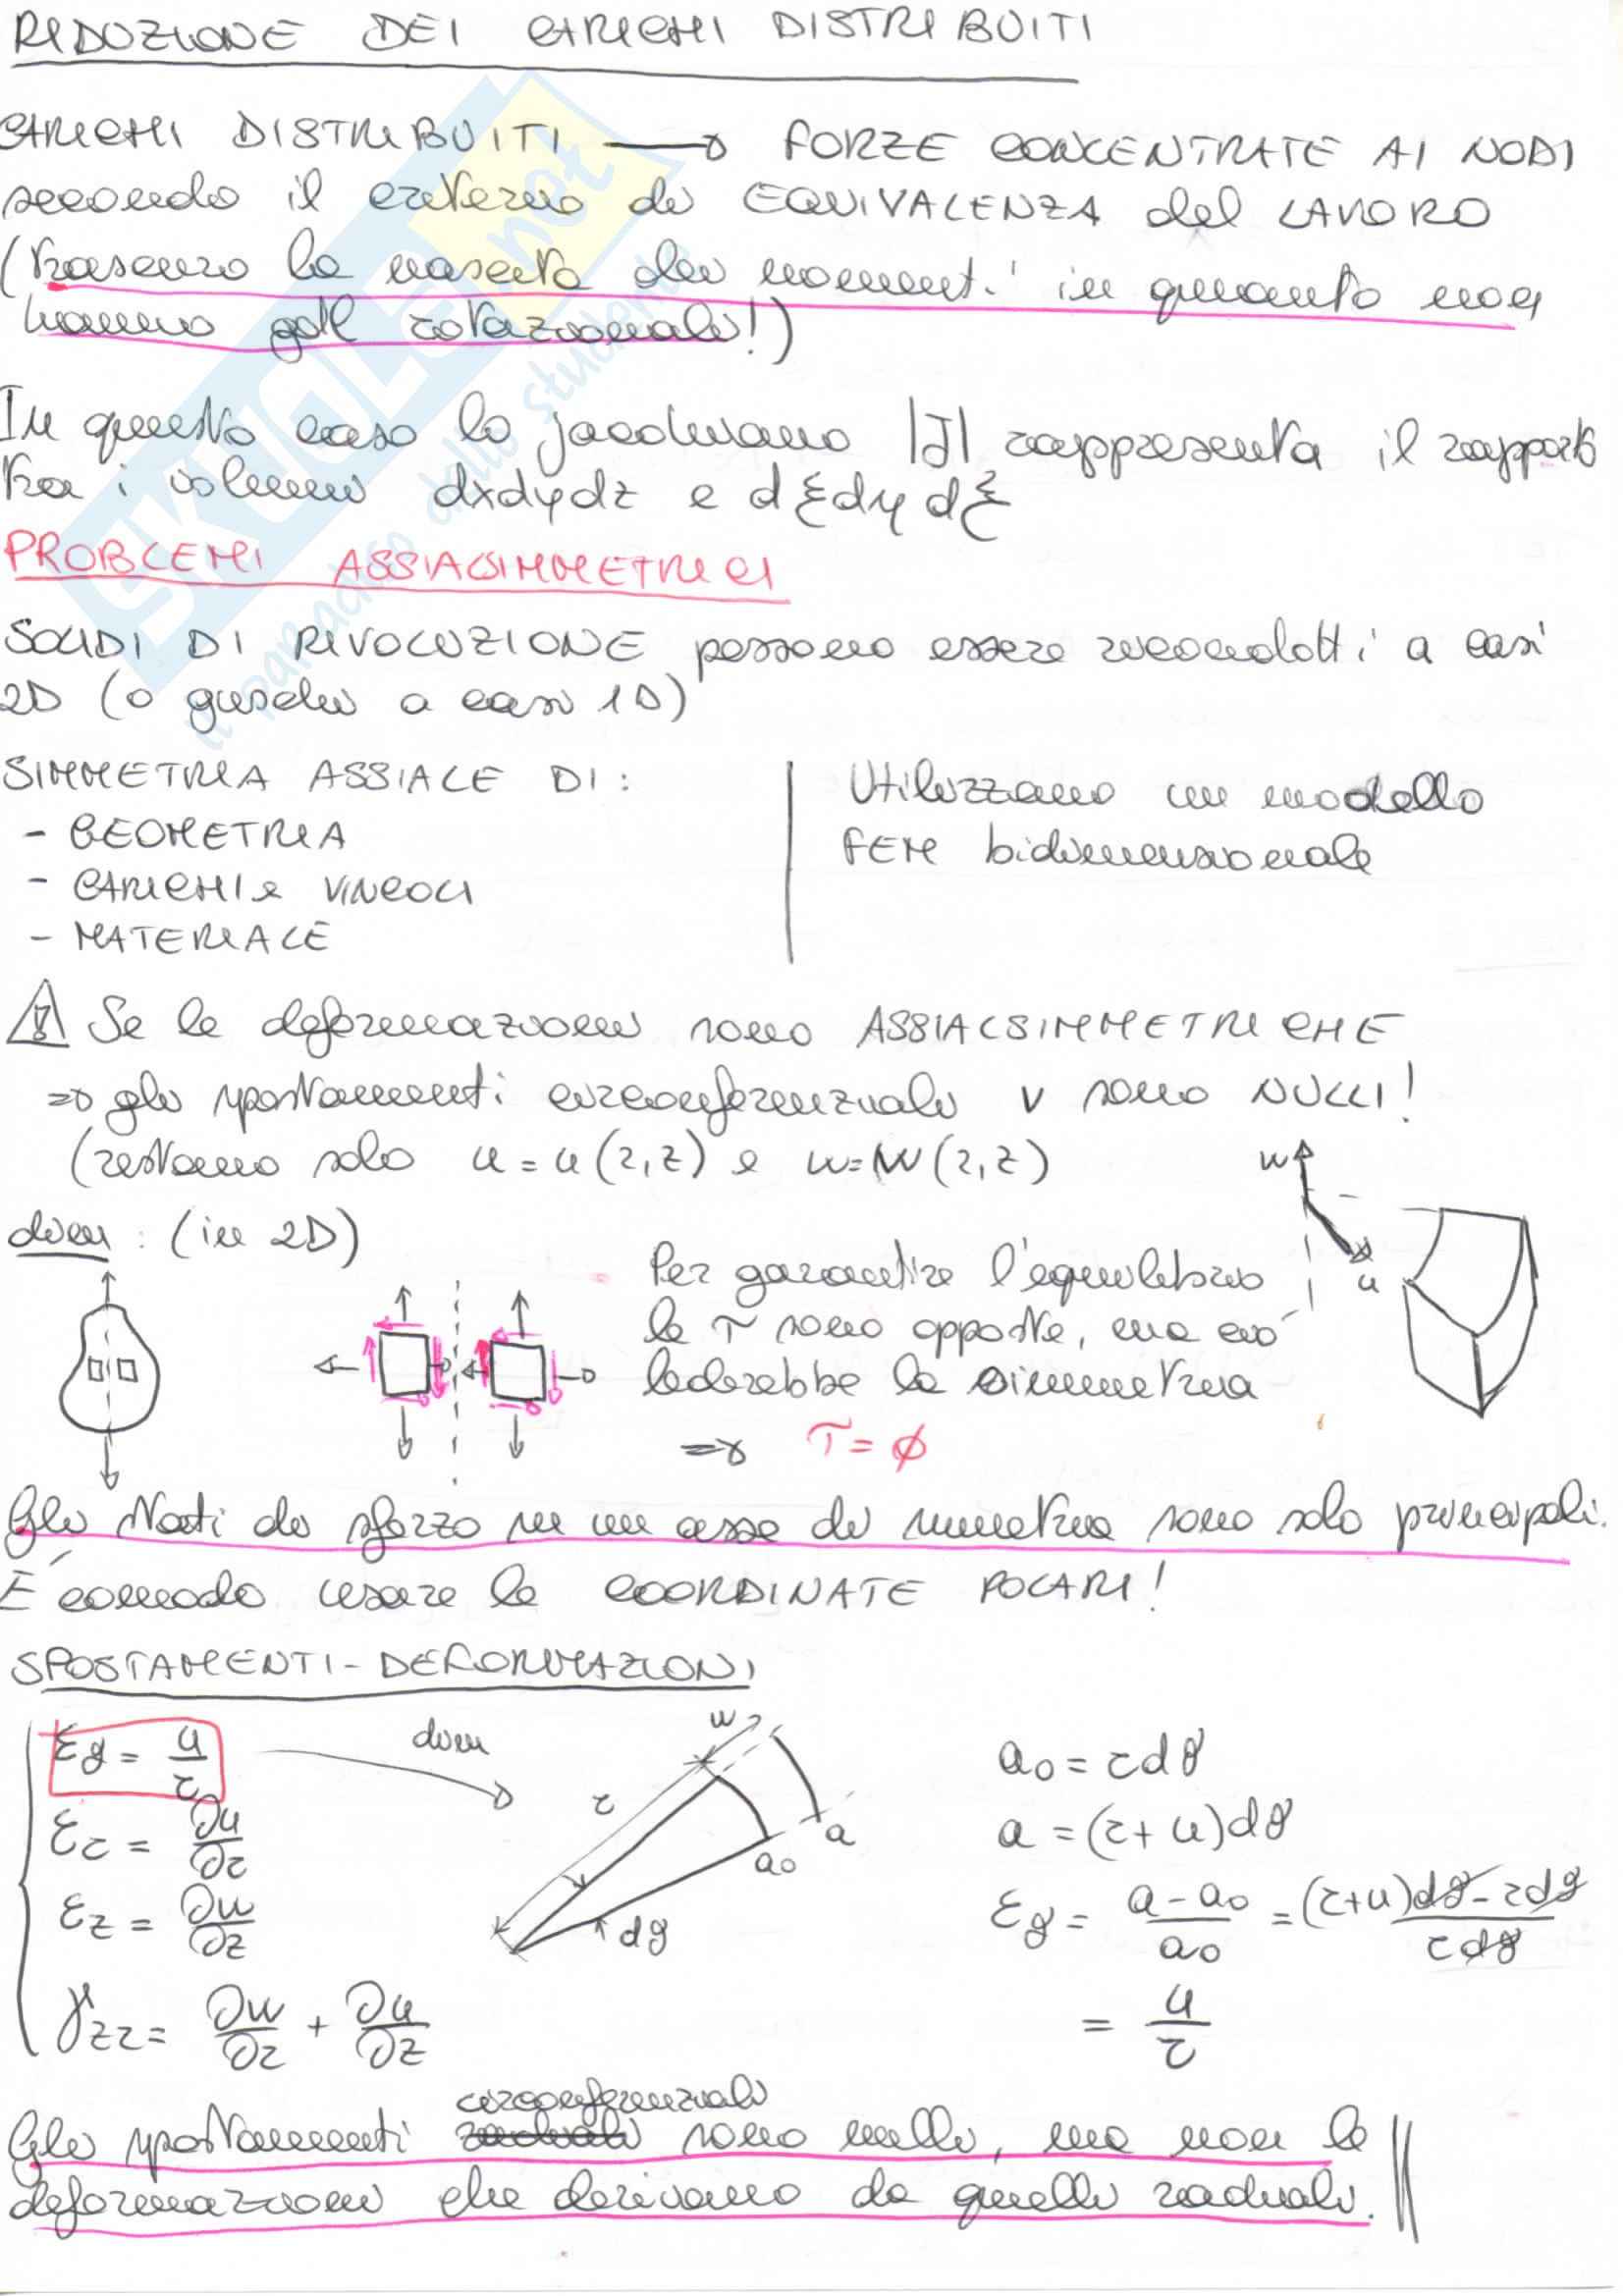 RIDUZIONE DEI CARICHI DISTRIBUITI
CARICHI DISTRIBUITI → FORZE CONCENTRATE AI NODI
secondo il criterio di EQUIVALENZA del LAVORO
(trascuro la nascita dei momenti in quanto non
hanno gdl rotazionali!)
In questo caso lo jacobiano |J| rappresenta il rapporto
tra i volumi dxdydz e dξdηdζ
PROBLEMI ASSIALSIMMETRICI
SOLIDI DI RIVOLUZIONE possono essere ricondotti a casi
2D (o gusci a casi 1D)
SIMMETRIA ASSIALE DI:
- GEOMETRIA
- CARICHI e VINCOLI
- MATERIALE
Utilizziamo un modello
FEM bidimensionale
⚠ Se le deformazioni sono ASSIALSIMMETRICHE
⇒ gli spostamenti circonferenziali v sono NULLI!
(restano solo u = u(r,z) e w = w(r,z)
w
u
dim : (in 2D)
Per garantire l'equilibrio
le τ sono opposte, ma ciò
lederebbe la simmetria
⇒ τ = ∅
Gli stati di sforzo in un asse di simmetria sono solo principali.
È comodo usare le COORDINATE POLARI!
SPOSTAMENTI - DEFORMAZIONI
εϑ = u/r
εr = ∂u/∂r
εz = ∂w/∂z
γrz = ∂w/∂r + ∂u/∂z
dim
w
r
a
a₀
dϑ
a₀ = rdϑ
a = (r+u)dϑ
εϑ = (a - a₀)/a₀ = ((r+u)dϑ - rdϑ)/(rdϑ)
= u/r
circonferenziali
Gli spostamenti radiali sono nulli, ma non le
deformazioni che derivano da quelli radiali.
SKUOLA.net
il paradiso dello studente